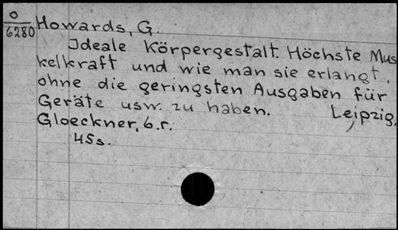 O
6280
Howards, G.
Ideale Körpergestalt. Höchste Mus
kelkraft und wie man sie erlangt,
ohne die geringsten Ausgaben für
Geräte usw. zu haben. Leipzig,
Gloeckner, 6.r.
45s.